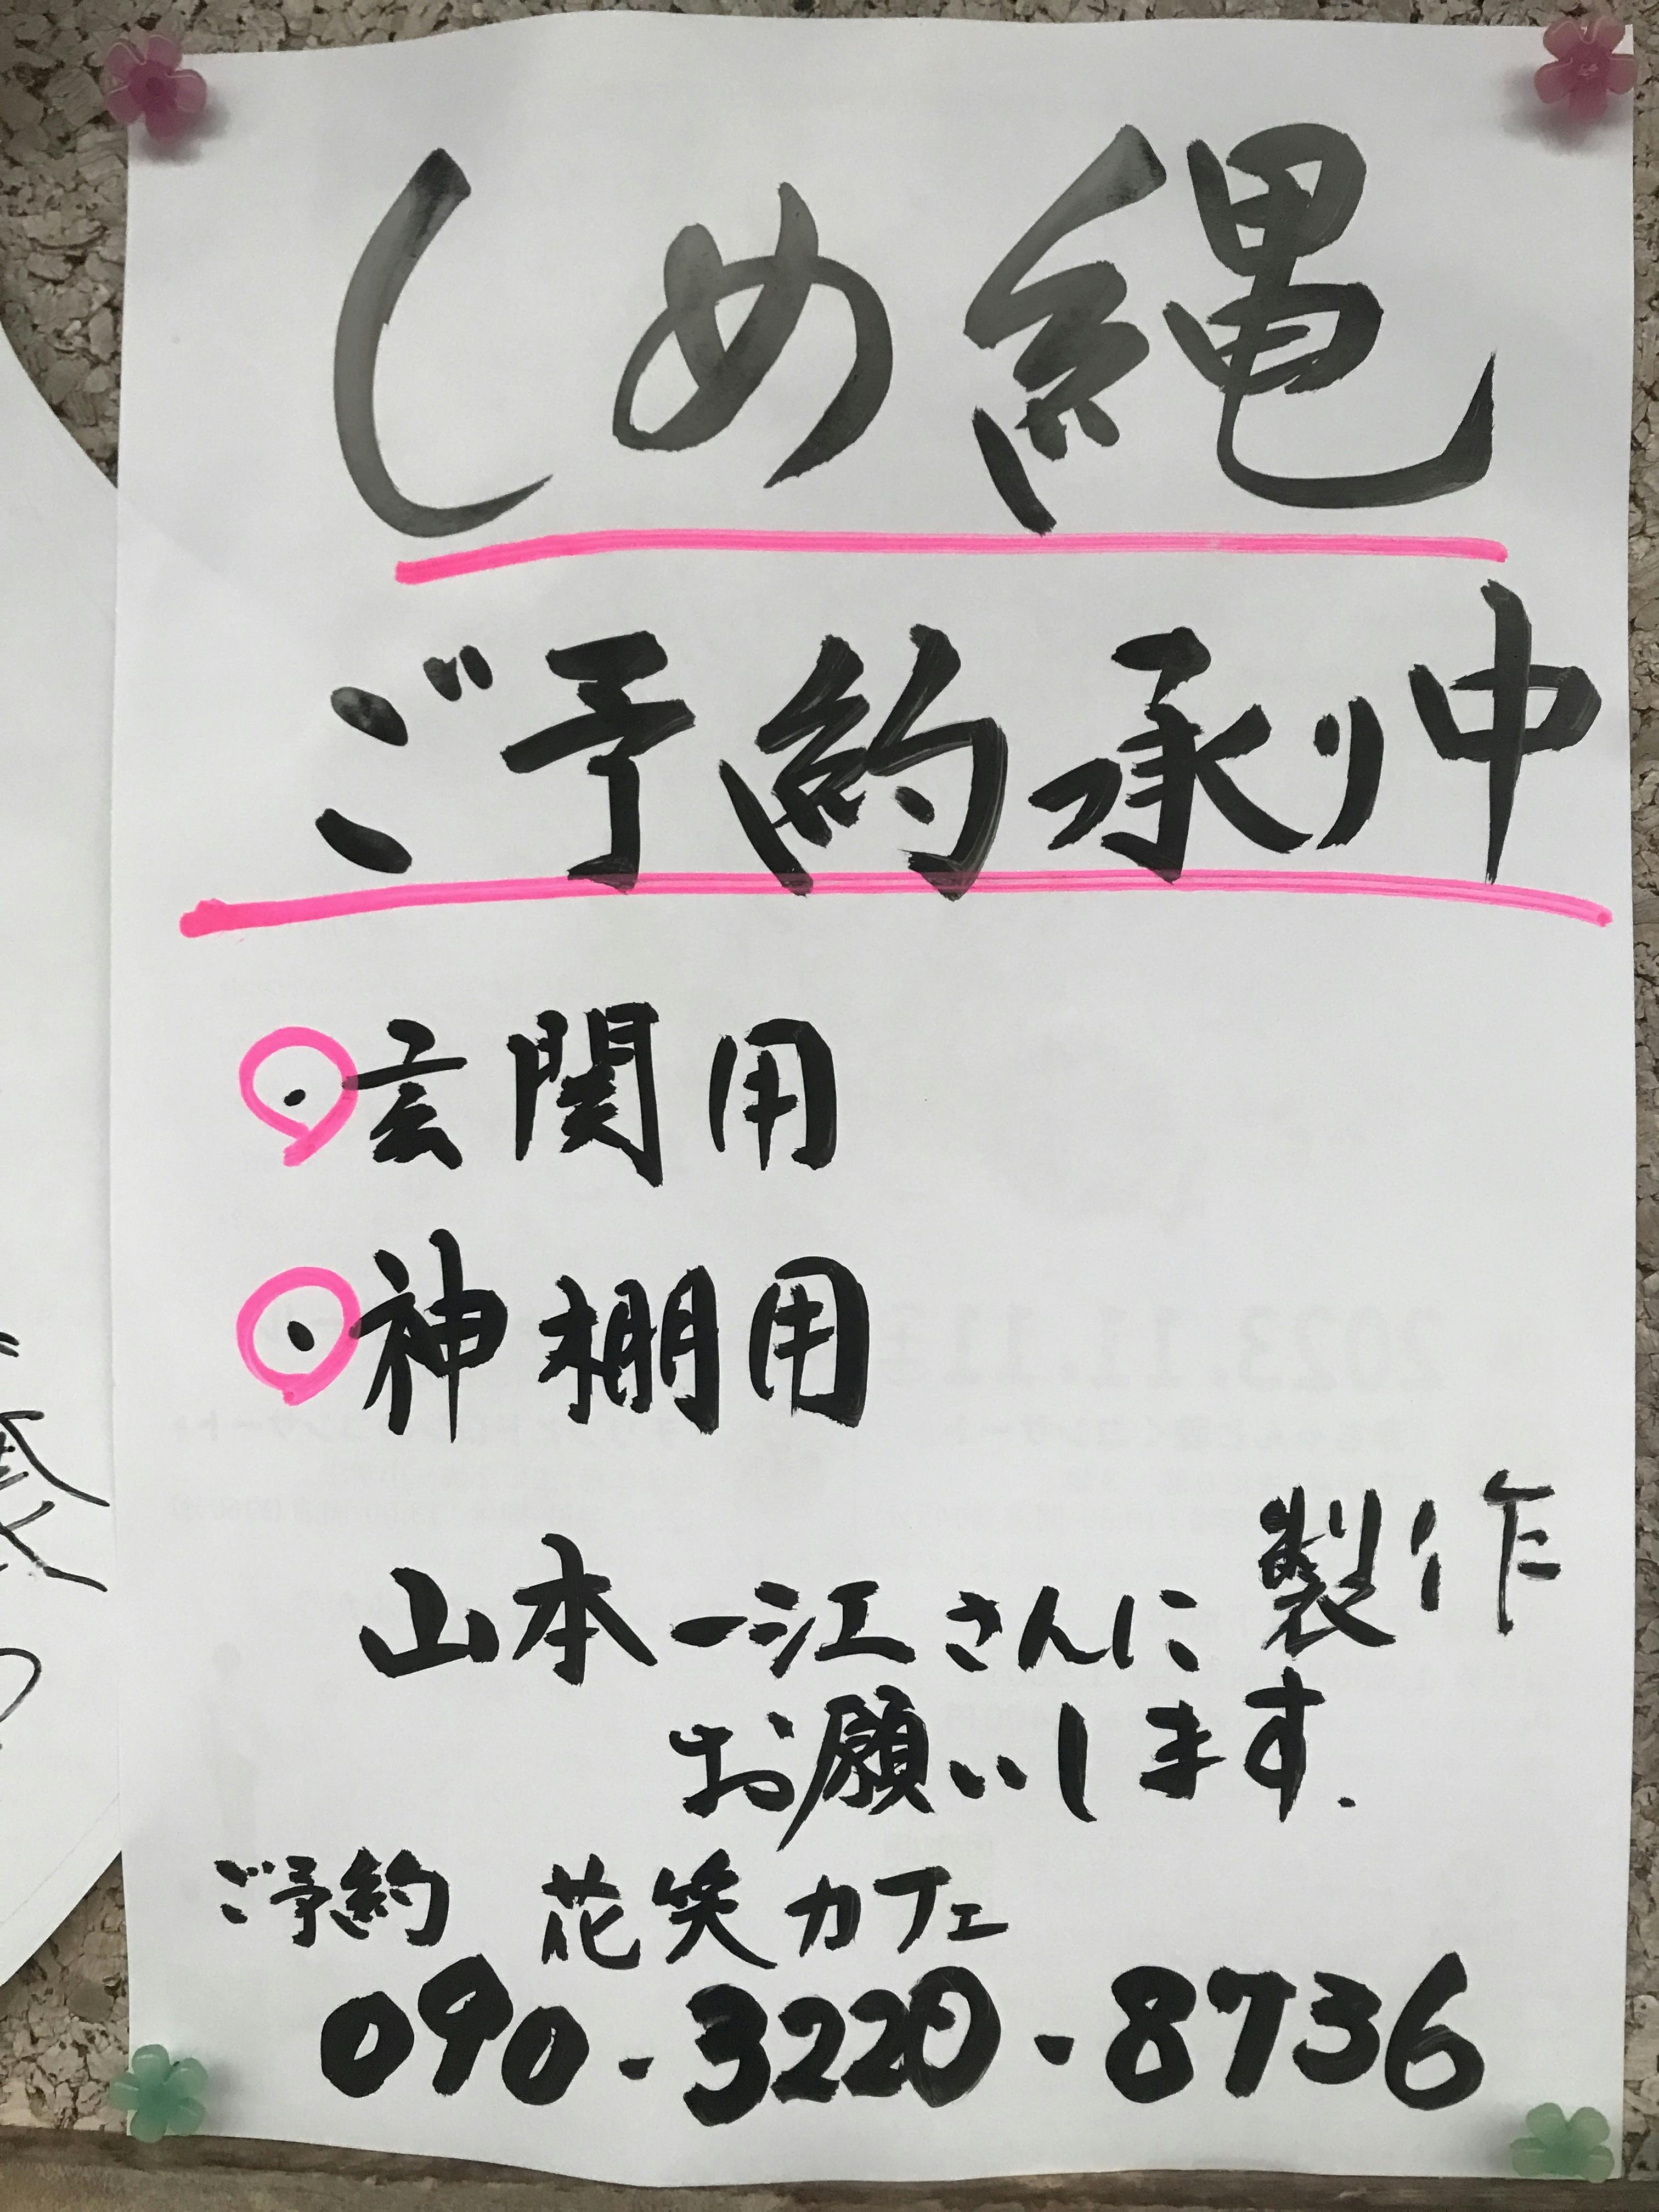 しめ縄
ご予約承り中
・玄関用
・神棚用
山本一江さんに製作
お願いします.
ご予約 花笑カフェ
090-3220-8736